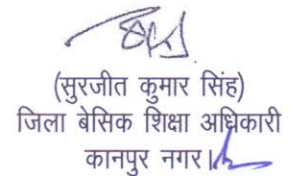 (सुरजीत कुमार सिंह)
जिला बेसिक शिक्षा अधिकारी
कानपुर नगर।